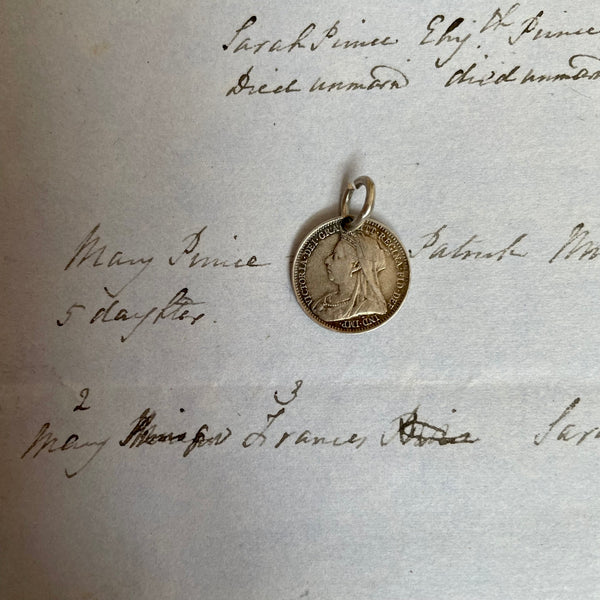 Sarah Prince Eliz.th Prince
Died unmarrd died unmarrd
Mary Prince Patrick
5 daughter.
2 3
Mary Frances Sara
VICTORIA·DEI·GRA· ·REGINA·FID·DEF· IND·IMP·